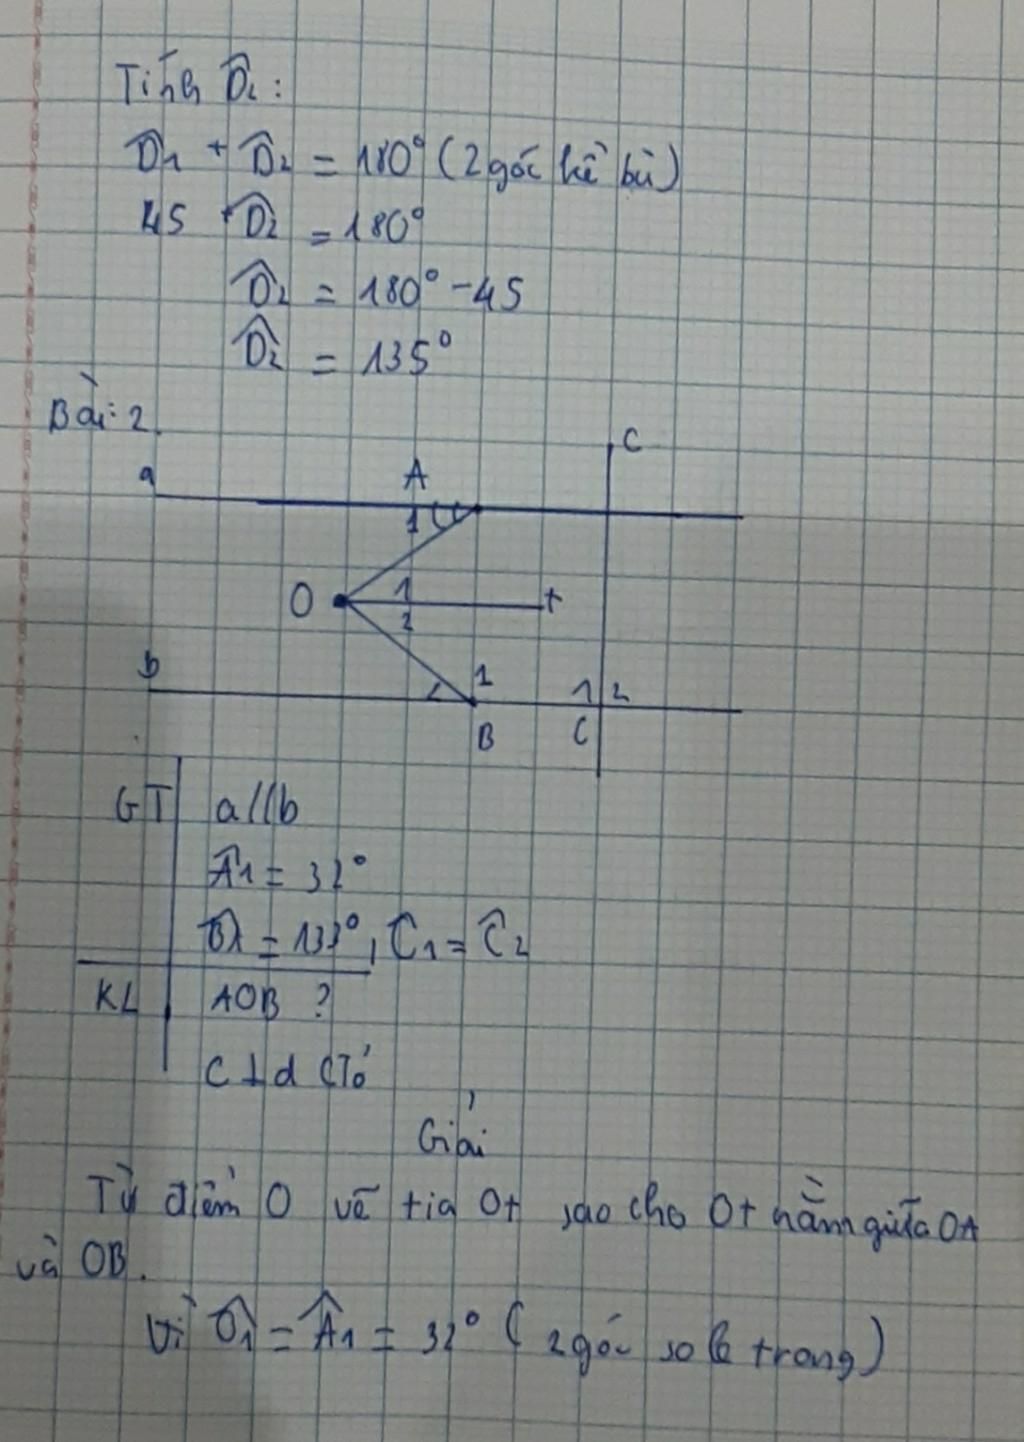 Tính D̂₂:
D̂₁ + D̂₂ = 180° (2 góc kề bù)
45 + D̂₂ = 180°
D̂₂ = 180° - 45
D̂₂ = 135°
Bài: 2
a A C
1
O 1 t
2
b 1 1 2
B C
GT a//b
Â₁ = 32°
= 133°, Ĉ₁ = Ĉ₂
KL AOB ?
C ⊥ d
Giải
Từ điểm O vẽ tia Ot sao cho Ot nằm giữa OA
và OB.
Vì Ô₁ = Â₁ = 32° (2 góc so le trong)